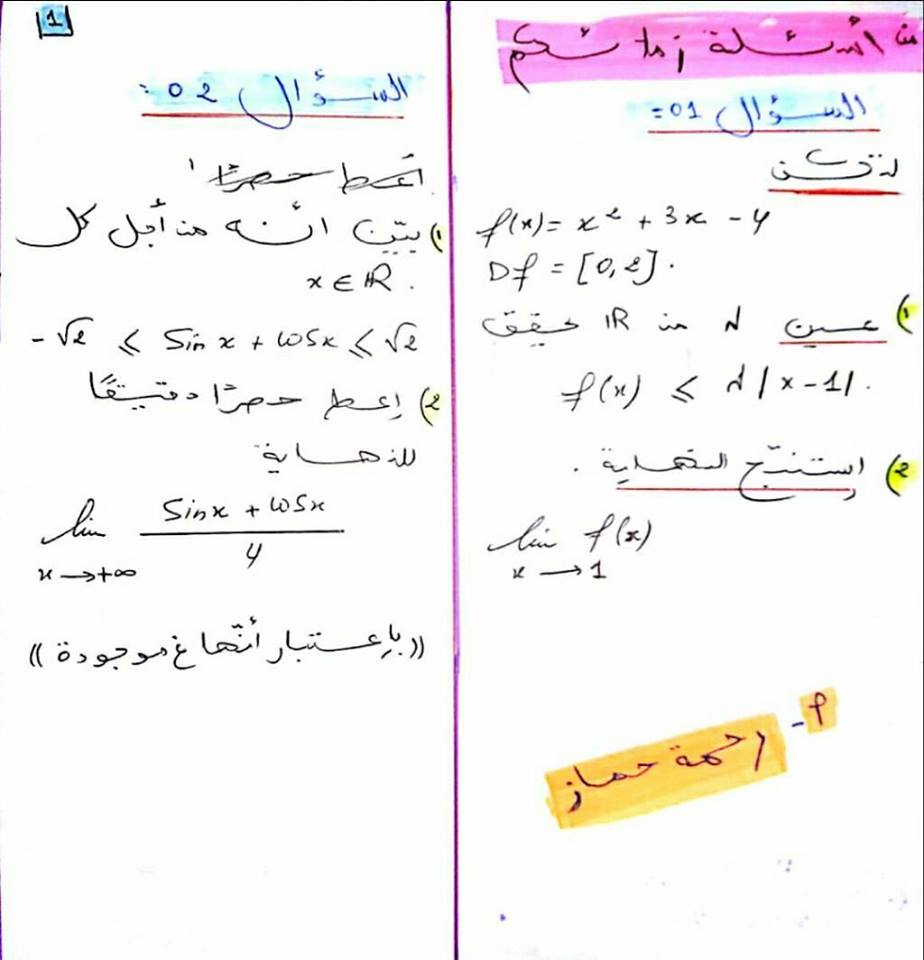 من أسئلة زملائكم
السؤال 01:
لتكن
f(x) = x² + 3x - 4
Df = [0,2].
1) عين λ من ℝ يحقق
f(x) ≤ λ|x-1|.
2) إستنتج النهاية.
lim f(x)
x→1
م- رحمة حماز
1
السؤال 02:
أعط حصرًا
1) بيّن أنه من أجل كل
x ∈ ℝ.
-√2 ≤ Sin x + cos x ≤ √2
2) إعط حصرًا دقيقًا
للنهاية
lim Sin x + cos x
x→+∞ 4
((بإعتبار أنّها غ موجودة))